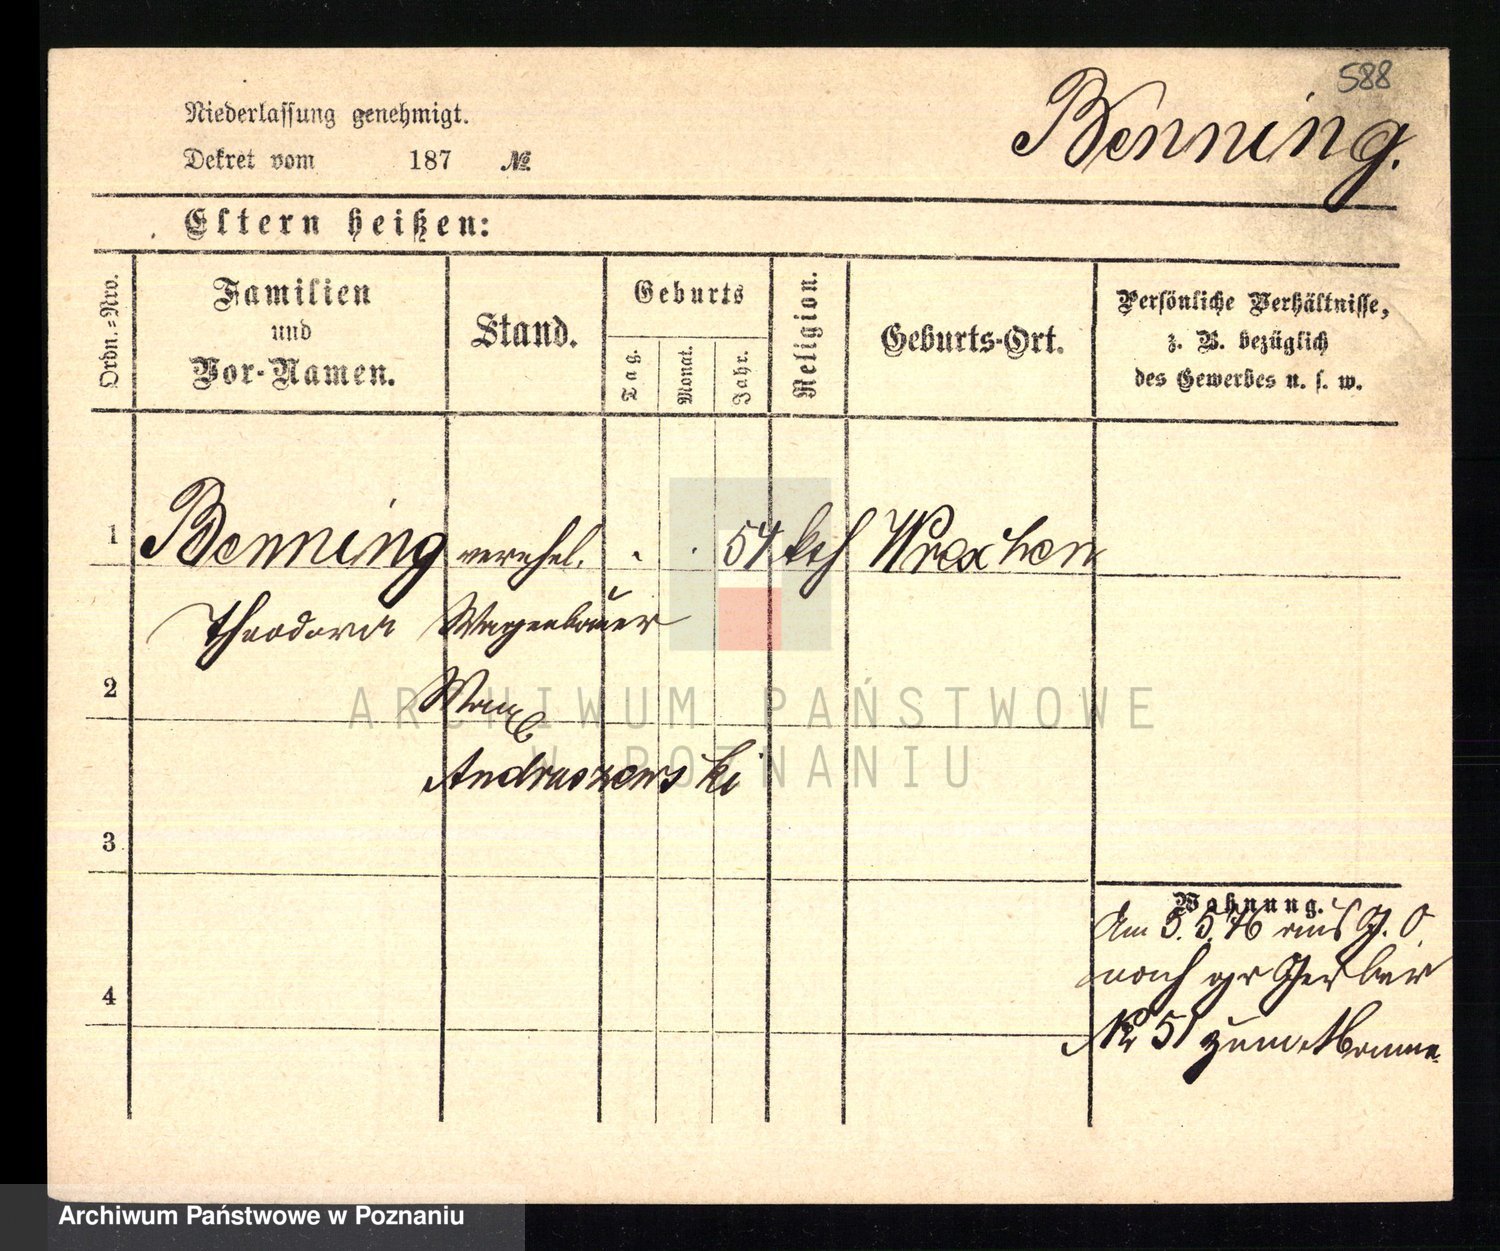 588
Benning.
Niederlassung genehmigt.
Dekret vom 187 №
Eltern heißen:
Ordn.=Nro.
Familien
und
Vor-Namen.
Stand.
Geburts
Tag.
Monat.
Jahr.
Religion.
Geburts-Ort.
Persönliche Verhältnisse,
z. B. bezüglich
des Gewerbes u. s. w.
1 Benning verehel. 54 kth Wreschen
Theodora Wagenbauer
2
Andruszewski
3
4
Wohnung.
Am 3.5.76 aus G. O.
nach gr Gerber
No 51 zum Manne
ARCHIWUM PAŃSTWOWE
W POZNANIU
Archiwum Państwowe w Poznaniu